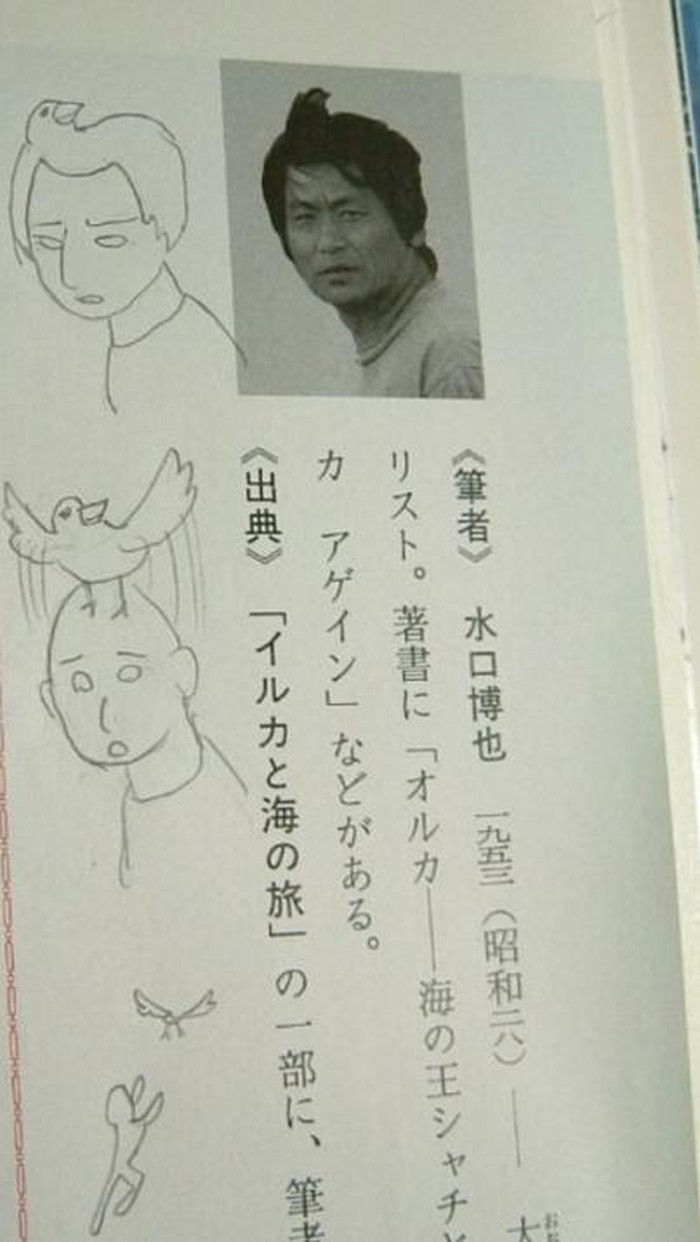 《筆者》 水口博也 一九五三(昭和二八)――
リスト。著書に「オルカ――海の王シャチと
カ アゲイン」などがある。
《出典》 「イルカと海の旅」の一部に、筆者